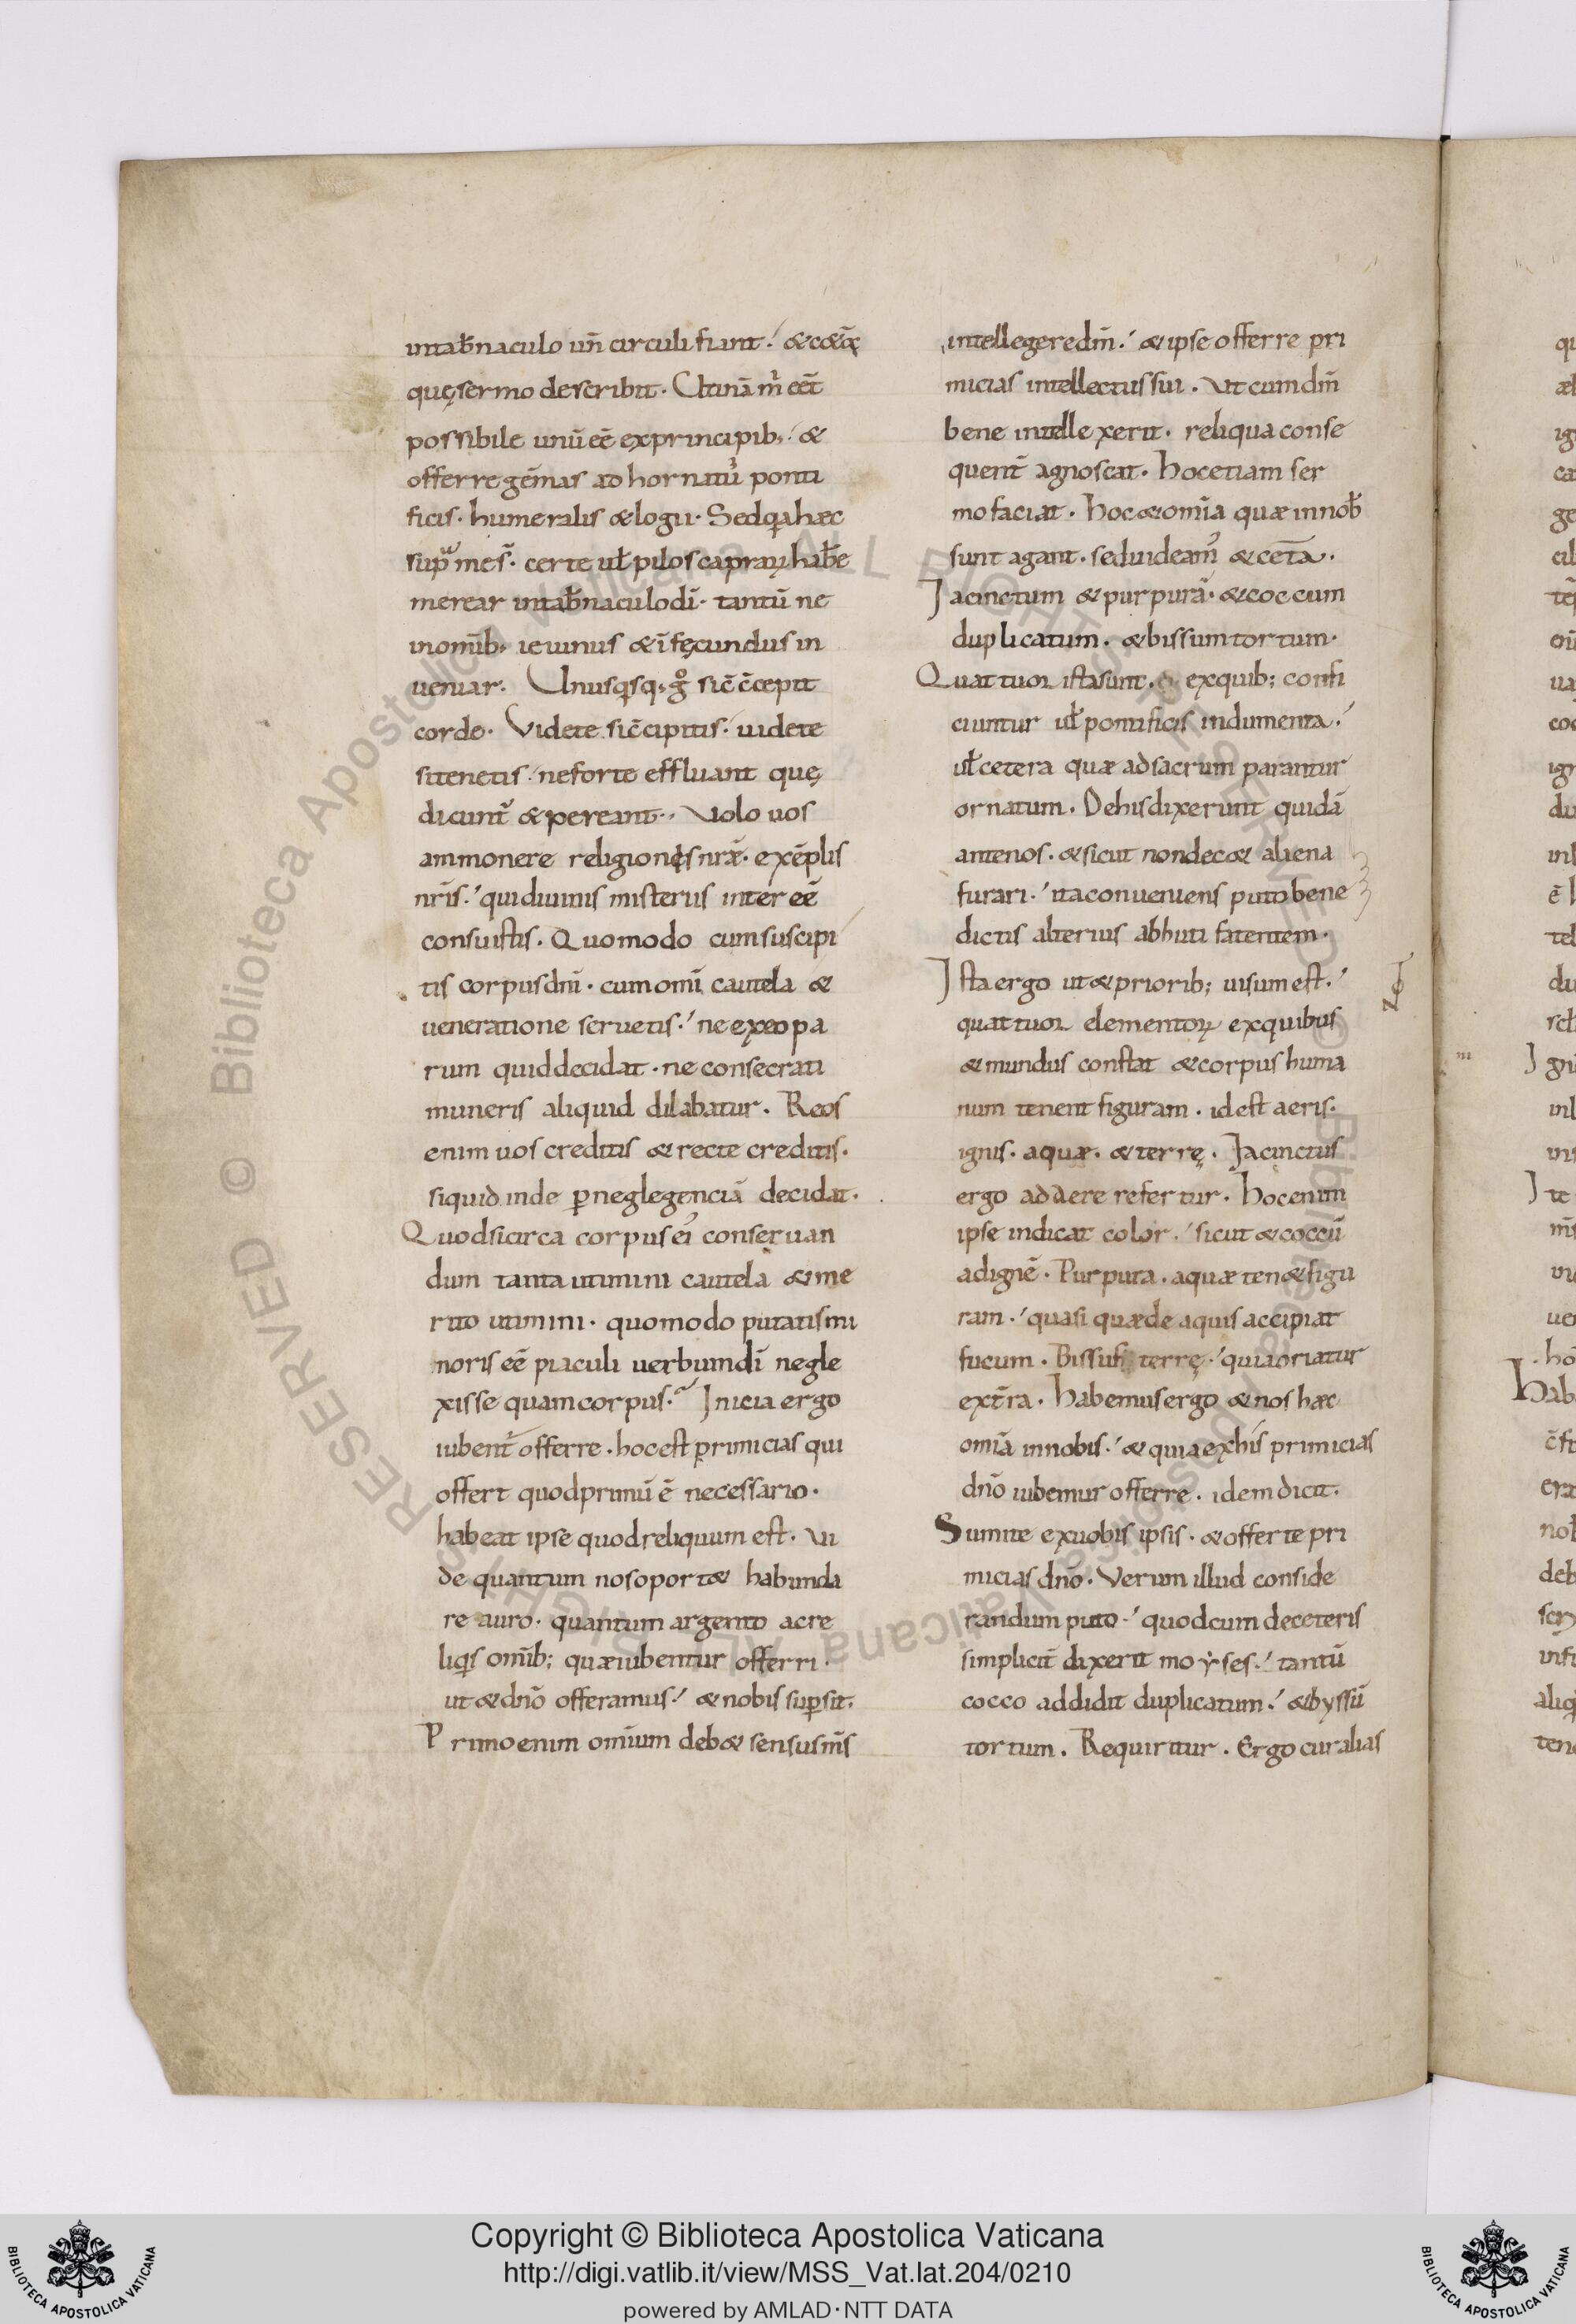 intab̄naculo un̄ circuli fiant. & cet̄a
quęsermo describit. Utinā m̄ eēt
possibile unū eē exprincipib; &
offerre gēmas ad hornatū ponti
ficis. humeralis & logii. Sed qa haec
supra me s̄. certe ul̄ pilos caprarꝝ hab̄e
merear intab̄naculo dī. tantū ne
inomīb; ieiunus & īfęcundus in
ueniar. Unusqsq; g̊ sic̄ c̄cepit
corde. Videte sic̄cipitis. uidete
sitenetis. neforte effluant quę
dicunt̄ & pereant. Volo uos
ammonere religionis nrǣ. exēplis
nrīs. qui diuinis misteriis inter eē
consuistis. Quomodo cum suscipi
tis corpus dnī. cum omī cautela &
ueneratione seruetis. ne exeo pa
rum quid decidat. ne consecrati
muneris aliquid dilabatur. Reos
enim uos creditis & recte creditis.
siquid inde ꝑneglegenciā decidat.
Quodsicirca corpus ei conseruan
dum tanta utimini cautela & me
rito utimini. quomodo putatis mi
noris eē piaculi uerbum dī negle
xisse quam corpus. Inicia ergo
iubent̄ offerre. hocest primicias qui
offert quod primū ē necessario.
habeat ipse quod reliquum est. Vi
de quantum nos oportet habunda
re auro. quantum argento ac re
liqis omīb; quae iubentur offerri.
ut & dnō offeramus. & nobis suꝑsit.
Primo enim omīum debet sensus m̄s
intellegere dm̄. & ipse offerre pri
micias intellectus sui. Ut cum dm̄
bene intellexerit. reliqua conse
quent̄ agnoscat. Hoc etiam ser
mo faciat. hoc & omīa quae in nob̄
sunt agant. sed uideam' & cet̄a.
Iacinctum & purpurā. & coccum
duplicatum. & bissum tortum.
Quattuor ista sunt. exquib; confi
ciuntur ul̄ pontificis indumenta.
ul̄ cetera quae ad sacrum parantur
ornatum. De his dixerunt quidā
ante nos. & sicut non decet aliena
furari. ita conueniens puto bene
dictis alterius abhuti fatentem.
Ista ergo ut & priorib; uisum est.
quattuor elementorꝝ exquibus
& mundus constat & corpus huma
num tenent figuram. id est aeris.
ignis. aquae. & terrę. Iacinctus
ergo ad aere refertur. hoc enim
ipse indicat color. sicut & coccū
ad ignē. Purpura. aquae tenet figu
ram. quasi quae de aquis accipiat
fucum. Bissus terrę. quia oriatur
ext̄ra. Habemus ergo & nos haec
omīa in nobis. & quia ex his primicias
dnō iubemur offerre. idem dicit.
Sumite exuobis ipsis. & offerte pri
micias dnō. Verum illud conside
randum puto. quod cum de ceteris
simplicit̄ dixerit moyses. tantū
cocco addidit duplicatum. & byssū
tortum. Requiritur. Ergo cur alias
Copyright © Biblioteca Apostolica Vaticana
http://digi.vatlib.it/view/MSS_Vat.lat.204/0210
powered by AMLAD·NTT DATA